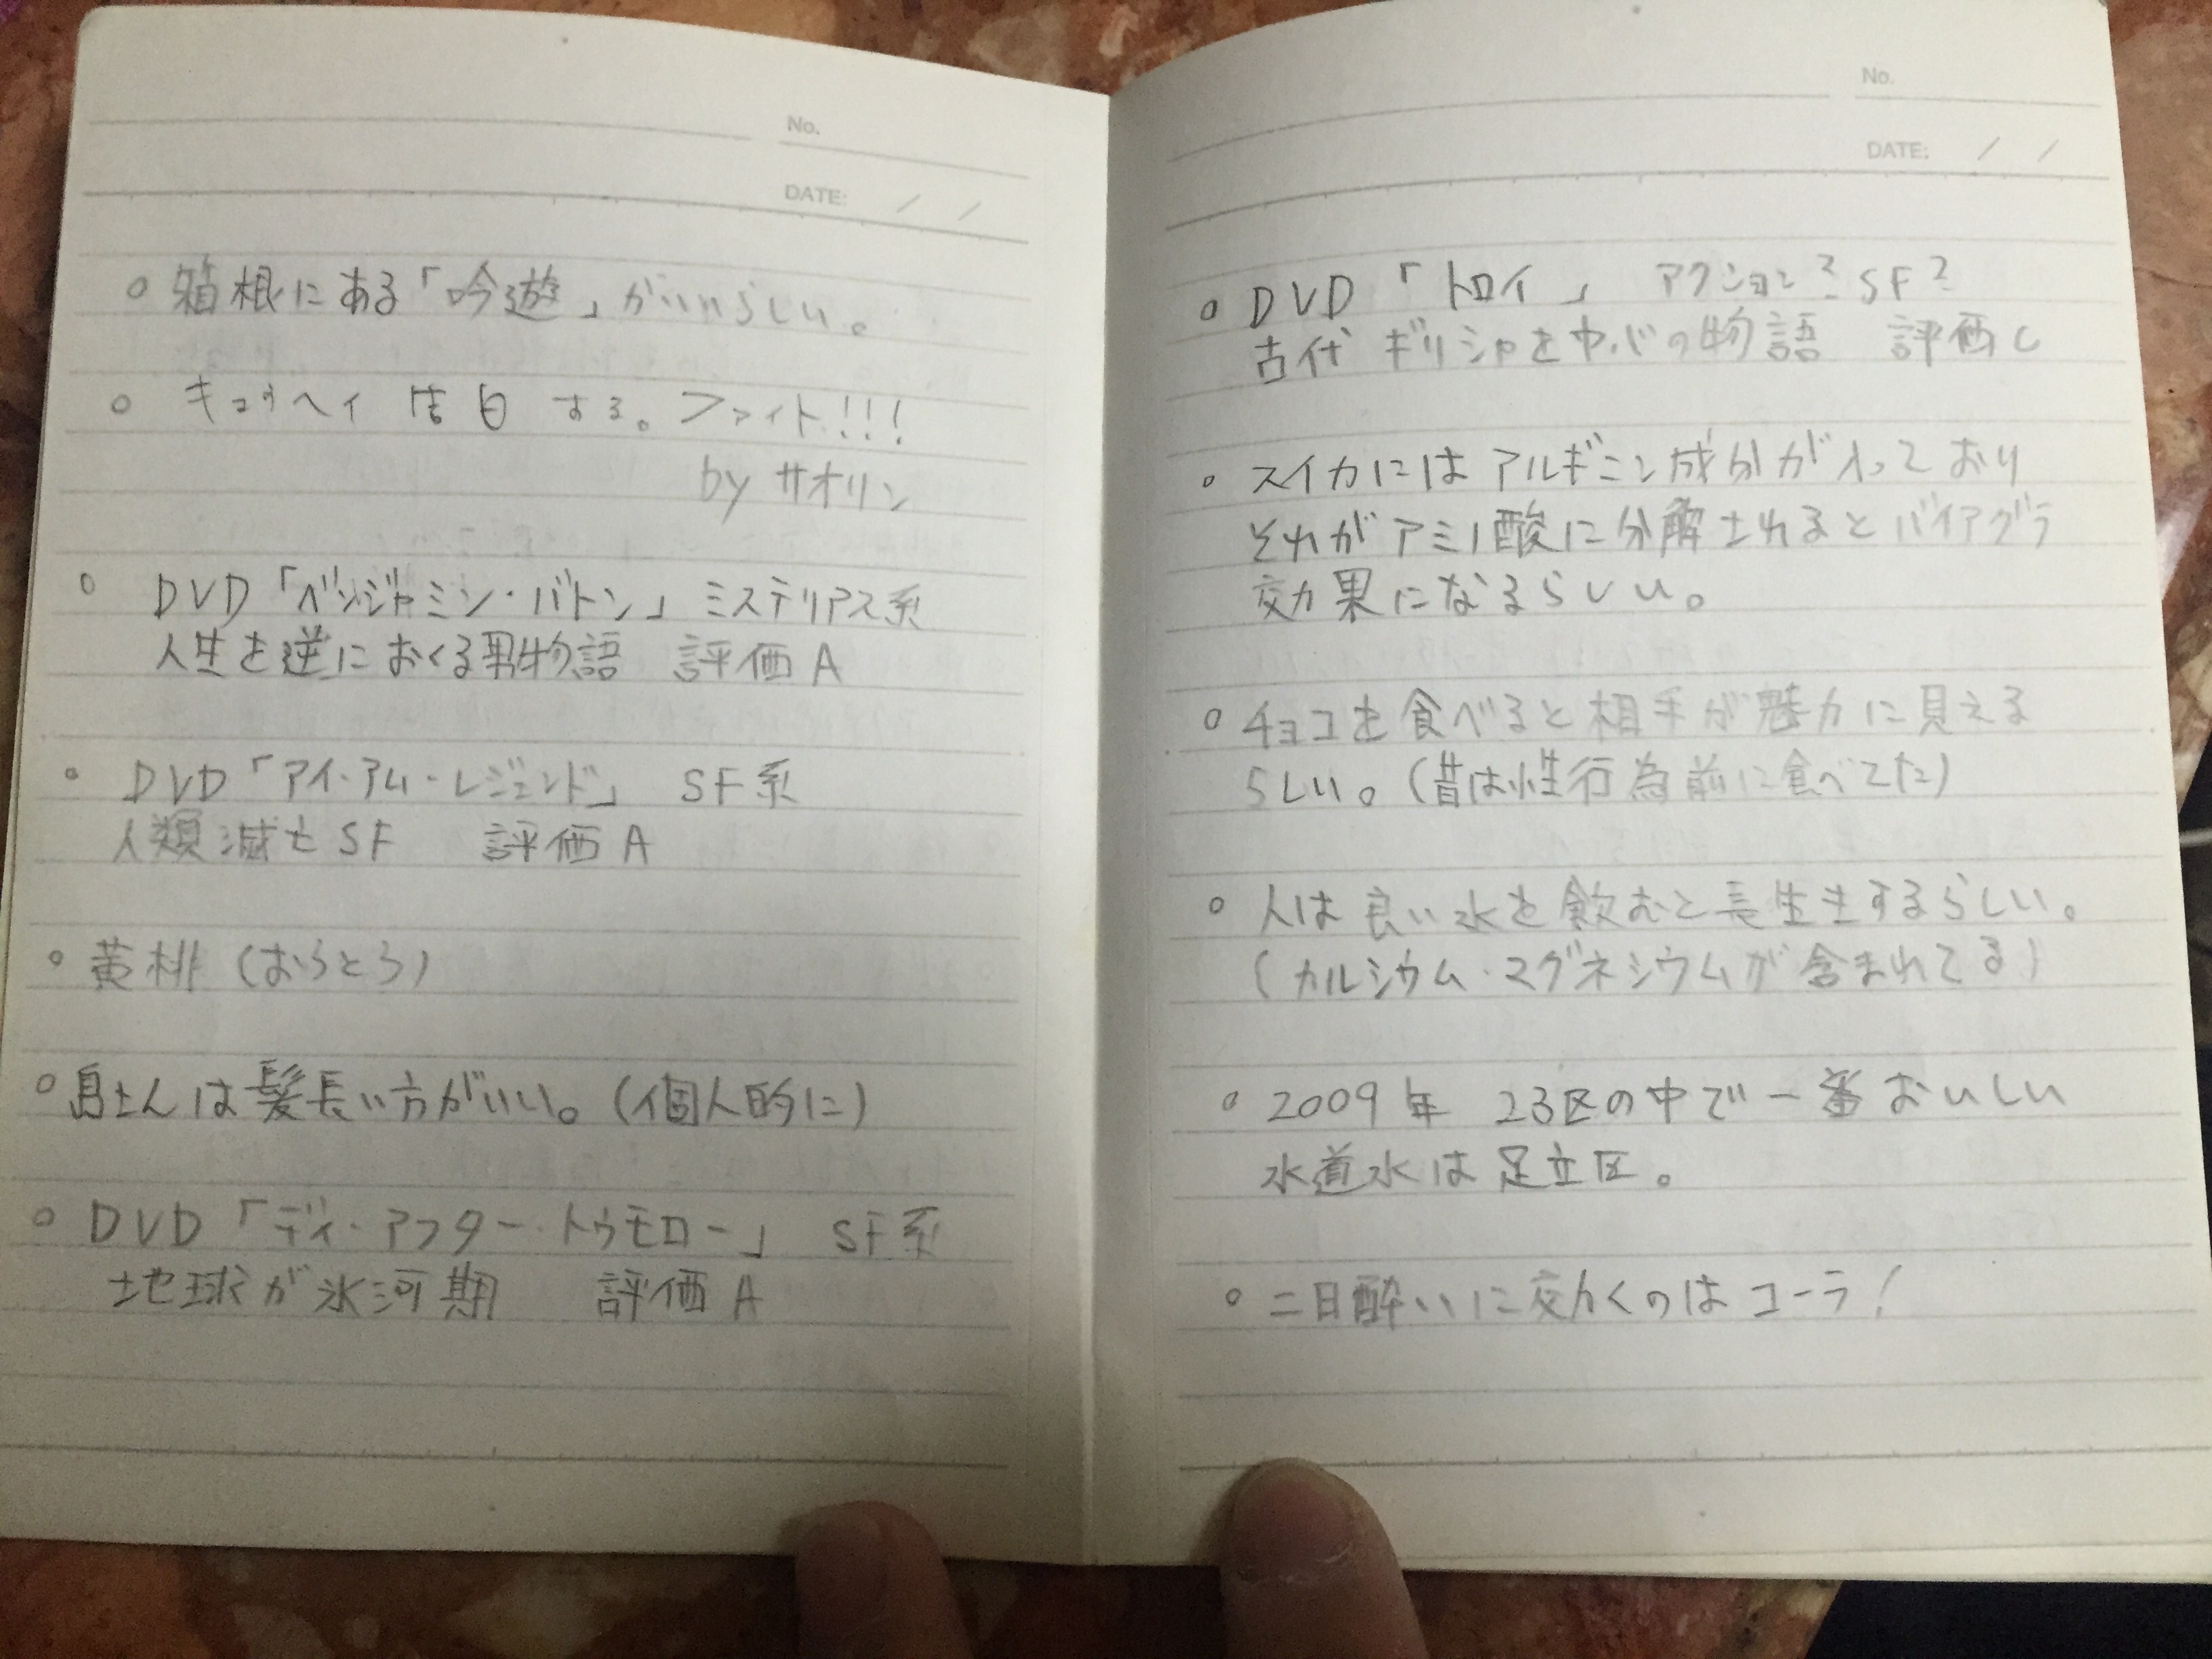 No.
DATE: / /
○ 箱根にある「吟遊」がいいらしい。
○ キョウヘイ 告白 する。ファイト!!!
by サオリン
○ DVD「ベンジャミン・バトン」ミステリアス系
人生を逆におくる男物語 評価A
○ DVD「アイ・アム・レジェンド」 SF系
人類滅亡SF 評価A
○ 黄桃(おうとう)
○ 島さんは髪長い方がいい。(個人的に)
○ DVD「デイ・アフター・トゥモロー」 SF系
地球が氷河期 評価A
No.
DATE: / /
○ DVD「トロイ」 アクション? SF?
古代ギリシャを中心の物語 評価C
○ スイカにはアルギニン成分が入っており
それがアミノ酸に分解されるとバイアグラ
効果になるらしい。
○ チョコを食べると相手が魅力に見える
らしい。(昔は性行為前に食べてた)
○ 人は良い水を飲むと長生きするらしい。
(カルシウム・マグネシウムが含まれてる)
○ 2009年 23区の中で一番おいしい
水道水は足立区。
○ 二日酔いに効くのはコーラ!